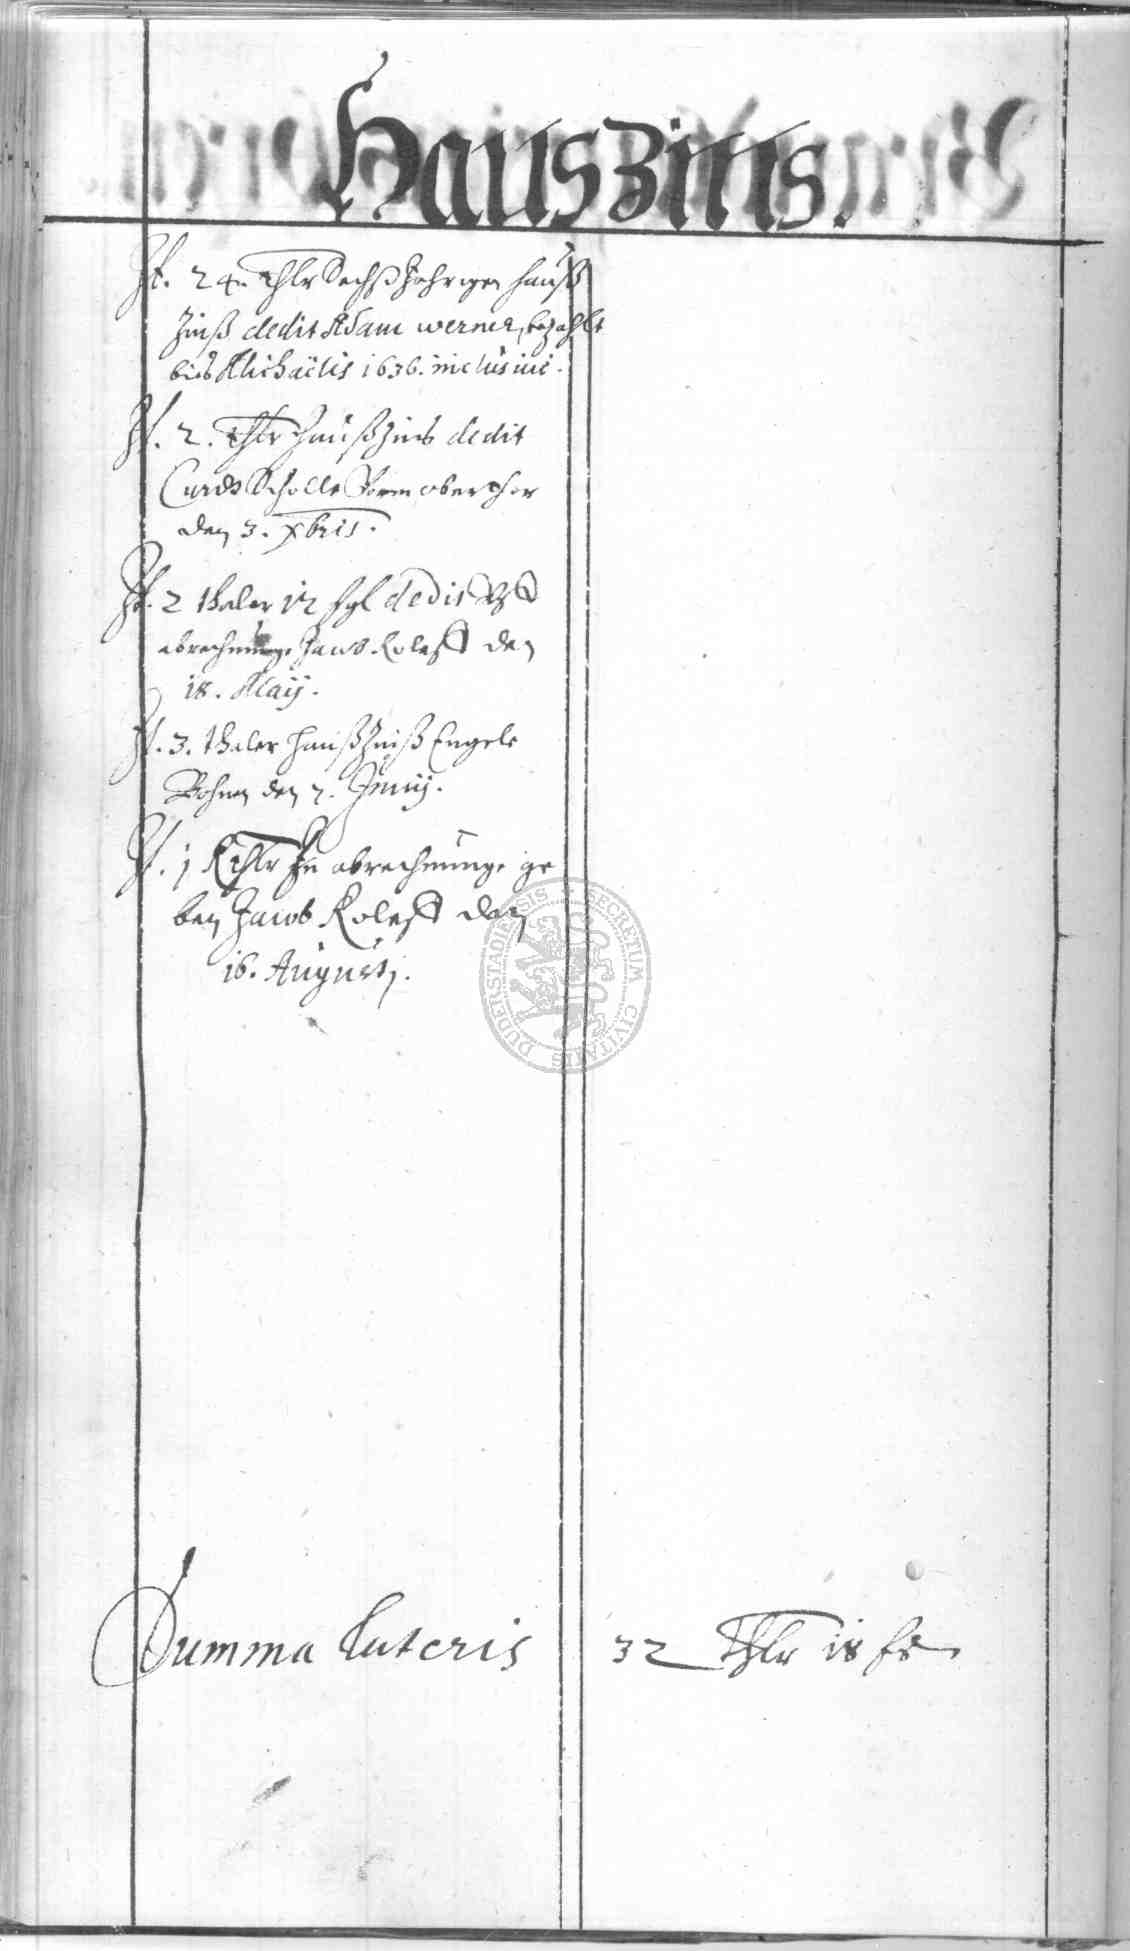 Hauszins.
It. 24. Thlr Sechs Jahrigen hauß
Zinß dedit Adam werner, bezahlt
bis Michaëlis 1636. inclusive.
It. 2. Thlr Haußzins dedit
Curdt Scholle Vorm oberthor
den 3. Xbris.
It. 2 thaler 12 ßgl dedit
abrechnung Jacob den
18. Maij.
It. 3. thaler haußZinß Engele
den 7. Junij.
It. 1 Rthlr In abrechnunge ge
ben Jacob den
16. Augusti.
DUDERSTADIENSIS SECRETUM CIVITATIS
Summa lateris 32 Thlr 18